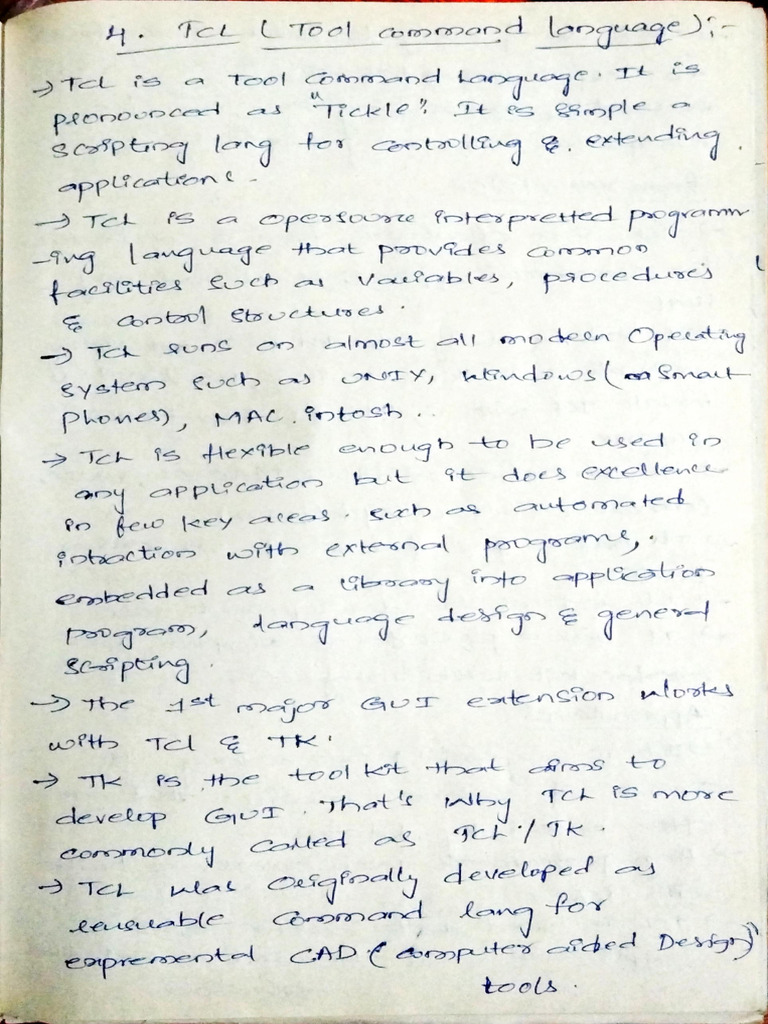 4. Tcl (Tool command language):-
→ Tcl is a Tool Command Language. It is
pronounced as "Tickle". It is simple a
scripting lang for controlling & extending
applications.
→ Tcl is a opensource interpretted programm
-ing language that provides common
facilities such as variables, procedures
& control structures.
→ Tcl runs on almost all modern Operating
system such as UNIX, Windows (Smart
Phones), MAC.intosh..
→ Tcl is flexible enough to be used in
any application but it does excellence
in few key areas. such as automated
intraction with external programs,
embedded as a library into application
program, language design & general
scripting.
→ The 1st major GUI extension works
with Tcl & TK.
→ TK is the tool kit that aims to
develop GUI. That's why Tcl is more
commonly called as Tcl/TK.
→ Tcl was originally developed as
reusuable command lang for
expremental CAD (computer aided Design)
tools.